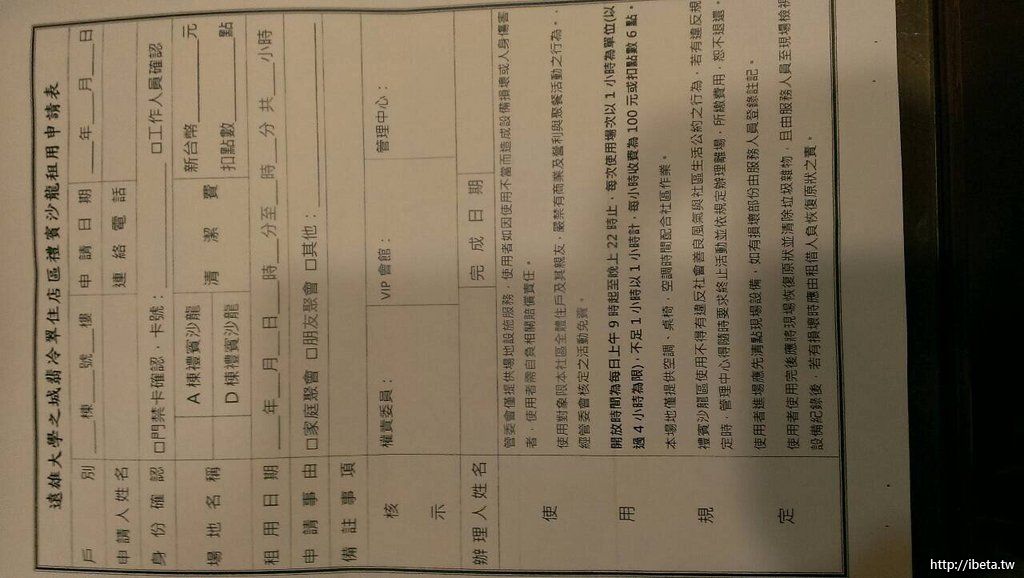 遠雄大學之城翡冷翠住店區禮賓沙龍租用申請表
戶別 ____棟____號____樓 申請日期 ____年____月____日
申請人姓名 連絡電話
身份確認 □門禁卡確認，卡號：____________ □工作人員確認
場地名稱 A棟禮賓沙龍 清潔費 新台幣________元
D棟禮賓沙龍 扣點數________點
租用日期 ____年____月____日____時____分至____時____分共____小時
申請事由 □家庭聚會 □朋友聚會 □其他：________
備註事項
核示 權責委員： VIP會館： 管理中心：
辦理人姓名 完成日期
使用規定
管委會僅提供場地設施服務，使用者如因使用不當而造成設備損壞或人身傷害
者，使用者需自負相關賠償責任。
使用對象限本社區全體住戶及其親友，嚴禁有商業及營利與聚餐活動之行為。
經管委會核定之活動免費。
開放時間為每日上午9時起至晚上22時止，每次使用場次以1小時為單位(以
過4小時為限)，不足1小時以1小時計，每小時收費為100元或扣點數6點。
本場地僅提供空調、桌椅，空調時間配合社區作業。
禮賓沙龍區使用不得有違反社會善良風氣與社區生活公約之行為，若有違反規
定時，管理中心得隨時要求終止活動並依規定辦理離場，所繳費用，恕不退還。
使用者進場應先清點現場設備，如有損壞部份由服務人員登錄註記。
使用者使用完後應將現場恢復原狀並清除垃圾雜物，且由服務人員至現場檢視
設備紀錄後，若有損壞時應由租借人負恢復原狀之責。
http://ibeta.tw